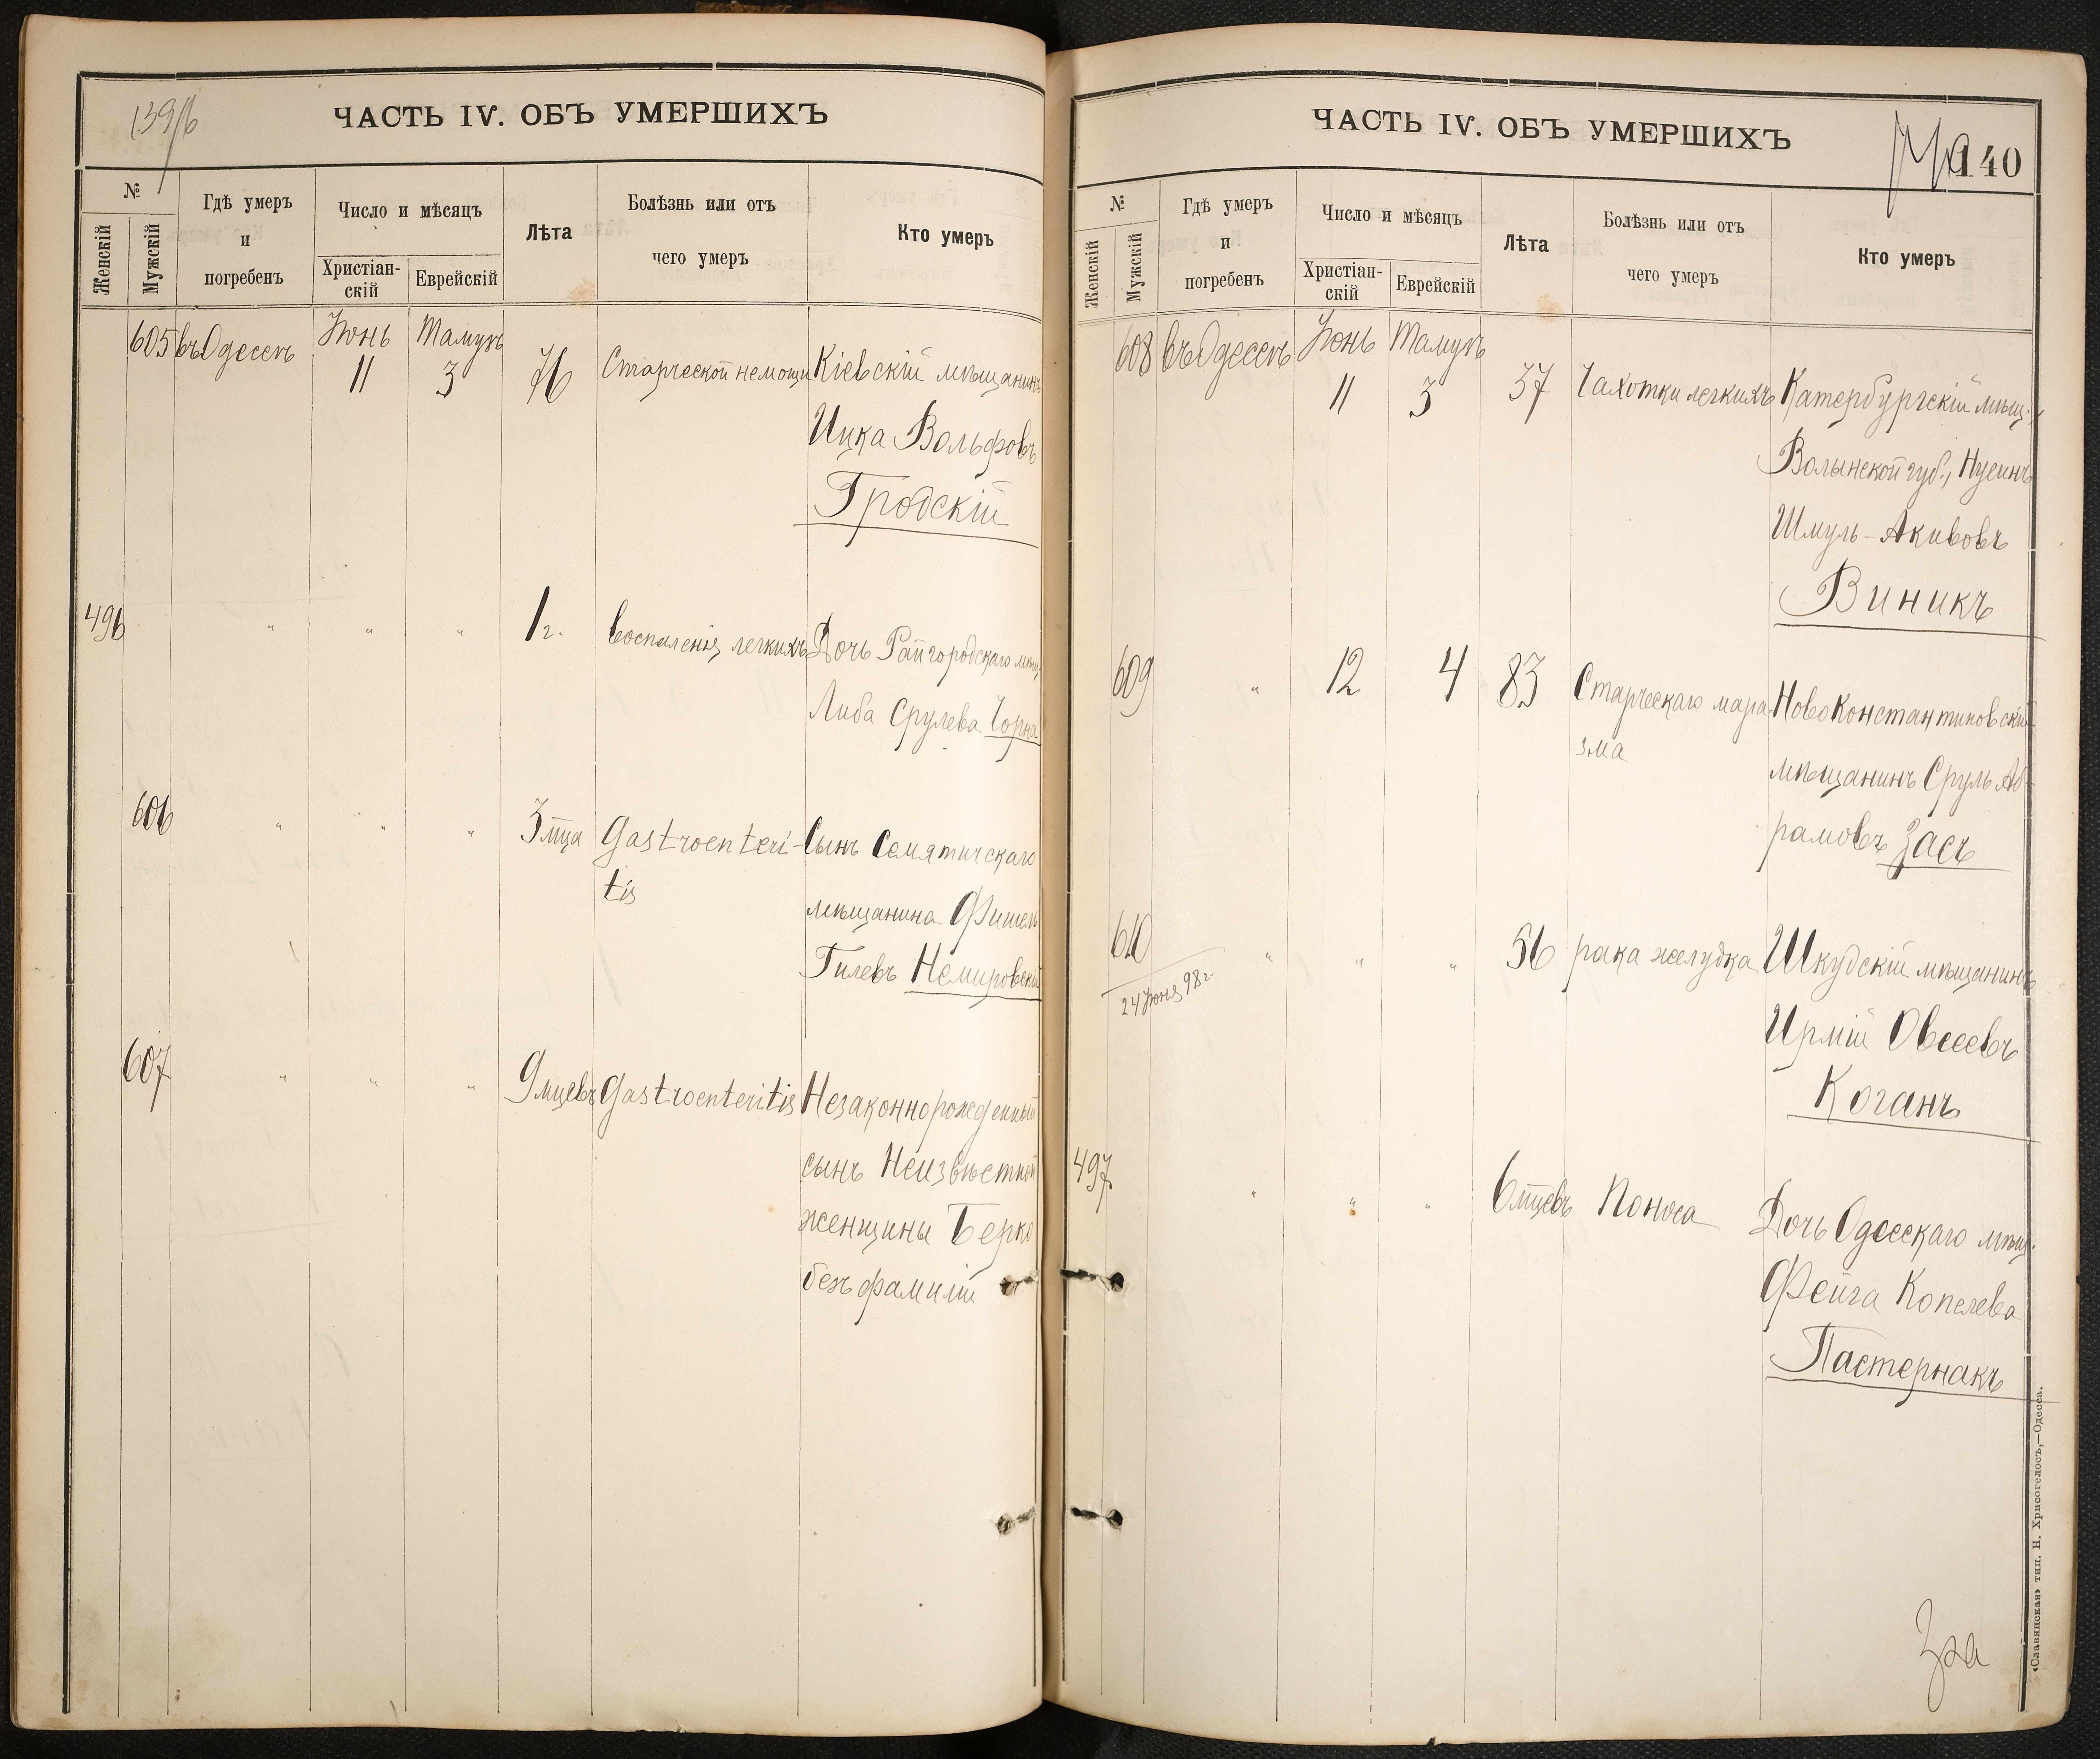 139/б
ЧАСТЬ IV. ОБЪ УМЕРШИХЪ
№
Женскій
Мужскій
Гдѣ умеръ
и
погребенъ
Число и мѣсяцъ
Христіан-
скій
Еврейскій
Лѣта
Болѣзнь или отъ
чего умеръ
Кто умеръ
605 въ Одессѣ Іюнь Тамузъ
11 3 76 Старческой немощи Кіевскій мѣщанинъ
Ицка Вольфовъ
Гродскій
496 " " " 1 г. Воспаленія легкихъ Дочь Райгородскаго мѣщ.
Либа Срулева Чорна
606 " " " 3 м‑ца Gastroenteri-
tis
Сынъ Семятичскаго
мѣщанина Фишель
Гилевъ Немировскій
607 " " " 9 мцевъ Gastroenteritis Незаконнорожденный
сынъ Неизвѣстной
женщины Берко
безъ фамиліи
ЧАСТЬ IV. ОБЪ УМЕРШИХЪ
140
№
Женскій
Мужскій
Гдѣ умеръ
и
погребенъ
Число и мѣсяцъ
Христіан-
скій
Еврейскій
Лѣта
Болѣзнь или отъ
чего умеръ
Кто умеръ
608 въ Одессѣ Іюнь Тамузъ
11 3 37 Чахотки легкихъ Катербургскій мѣщ.,
Волынской губ., Нусинъ
Шмуль-Акивовъ
Виникъ
609 " 12 4 83 Старческаго мара-
зма
Новоконстантиновскій
мѣщанинъ Сруль Аб-
рамовъ Засъ
610 " " " 56 рака желудка Шкудскій мѣщанинъ
24 Іюня 98 г.
Ирмій Овсеевъ
Коганъ
497 " " " 6 мцевъ Поноса Дочь Одесскаго мѣщ.
Фейга Копелева
Пастернакъ
«Славянская» тип. Н. Хрисогелосъ,—Одесса.